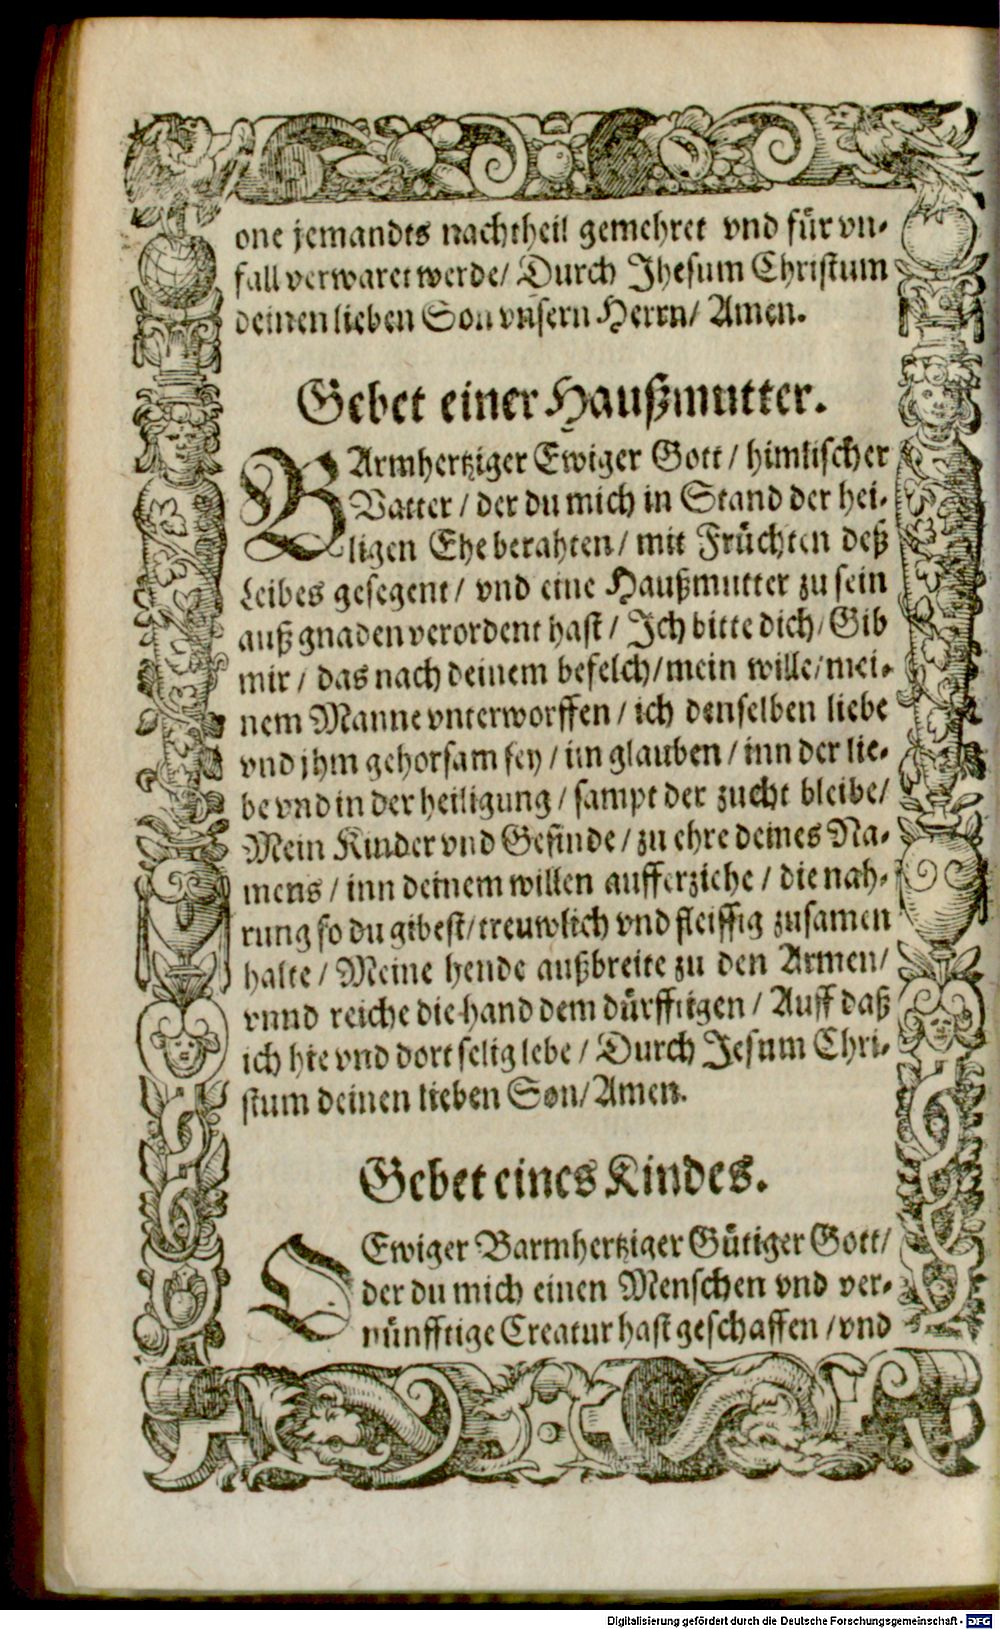 one jemandts nachtheil gemehret vnd für vn-
fall verwaret werde/ Durch Jhesum Christum
deinen lieben Son vnsern Herrn/ Amen.
Gebet einer Haußmutter.
BArmhertziger Ewiger Gott / himlischer
Vatter / der du mich in Stand der hei-
ligen Ehe berahten / mit Früchten deß
Leibes gesegent / vnd eine Haußmutter zu sein
auß gnaden verordent hast / Ich bitte dich / Gib
mir / das nach deinem befelch / mein wille / mei-
nem Manne vnterworffen / ich denselben liebe
vnd jhm gehorsam sey / im glauben / inn der lie-
be vnd in der heiligung / sampt der zucht bleibe/
Mein Kinder vnd Gesinde / zu ehre deines Na-
mens / inn deinem willen aufferziehe / die nah-
rung so du gibest / treuwlich vnd fleissig zusamen
halte / Meine hende außbreite zu den Armen/
vnnd reiche die hand dem dürfftigen / Auff daß
ich hie vnd dort selig lebe / Durch Jesum Chri-
stum deinen lieben Son/ Amen.
Gebet eines Kindes.
O Ewiger Barmhertziger Gütiger Gott/
der du mich einen Menschen vnd ver-
nünfftige Creatur hast geschaffen / vnd
Digitalisierung gefördert durch die Deutsche Forschungsgemeinschaft - DFG